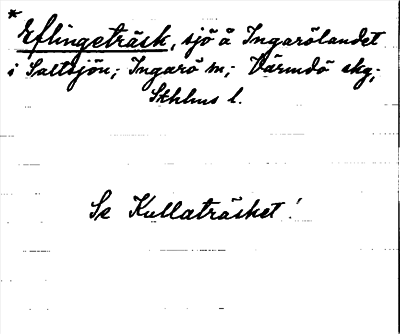 * Eflingeträsk, sjö å Ingarölandet
i Saltsjön; Ingarö sn; Värmdö skg;
Sthlms l.
Se Kullaträsket!